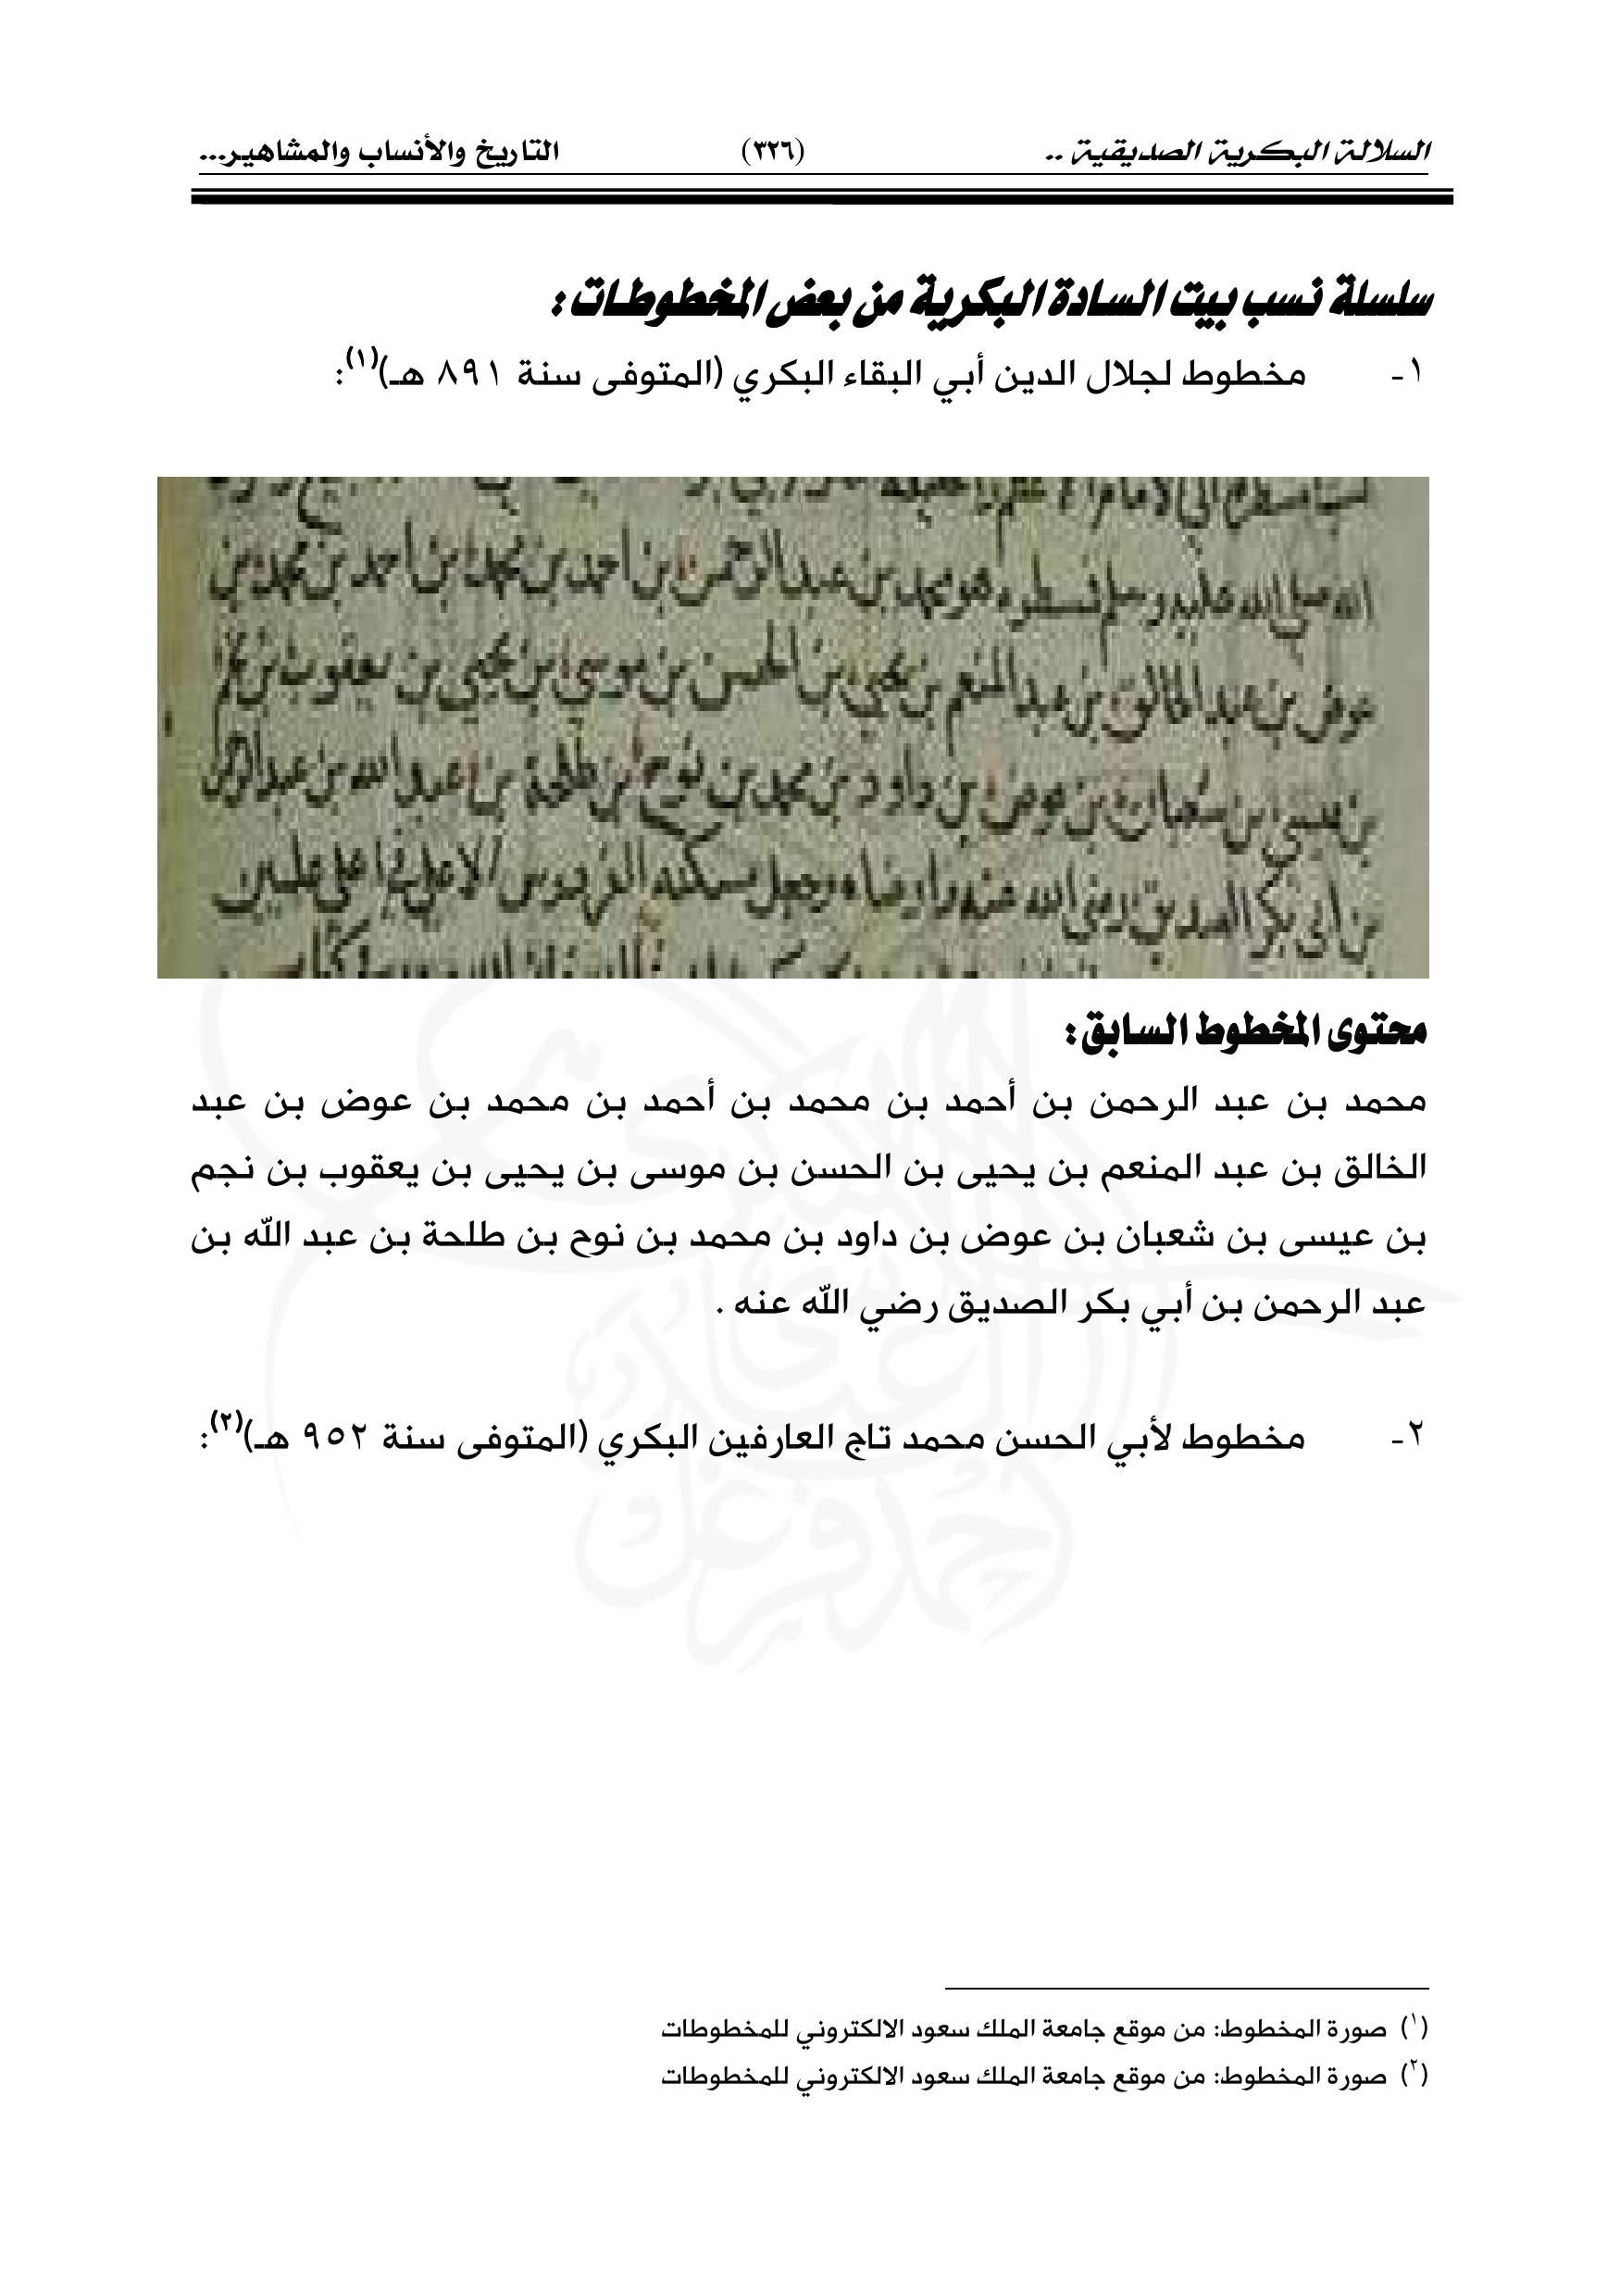 السلالة البكرية الصديقية .. (٣٢٦) التاريخ والأنساب والمشاهير...
سلسلة نسب بيت السادة البكرية من بعض المخطوطات :
١- مخطوط لجلال الدين أبي البقاء البكري (المتوفى سنة ٨٩١ هـ)(١):
الله صلى الله عليه وسلم هو محمد بن عبد الرحمن بن احمد بن محمد بن احمد بن محمد بن
عوض بن عبد الخالق بن عبد المنعم بن يحيى بن الحسن بن موسى بن يحيى بن يعقوب بن نجم
بن عيسى بن شعبان بن عوض بن داود بن محمد بن نوح بن طلحة بن عبد الله بن عبد الرحمن
بن أبي بكر الصديق رضى الله عنه وارضاه وجعل مسكنه الفردوس الاعلى في اعلى عليين
محتوى المخطوط السابق :
محمد بن عبد الرحمن بن أحمد بن محمد بن أحمد بن محمد بن عوض بن عبد
الخالق بن عبد المنعم بن يحيى بن الحسن بن موسى بن يحيى بن يعقوب بن نجم
بن عيسى بن شعبان بن عوض بن داود بن محمد بن نوح بن طلحة بن عبد الله بن
عبد الرحمن بن أبي بكر الصديق رضي الله عنه .
٢- مخطوط لأبي الحسن محمد تاج العارفين البكري (المتوفى سنة ٩٥٢ هـ)(٢):
(١) صورة المخطوط: من موقع جامعة الملك سعود الالكتروني للمخطوطات
(٢) صورة المخطوط: من موقع جامعة الملك سعود الالكتروني للمخطوطات